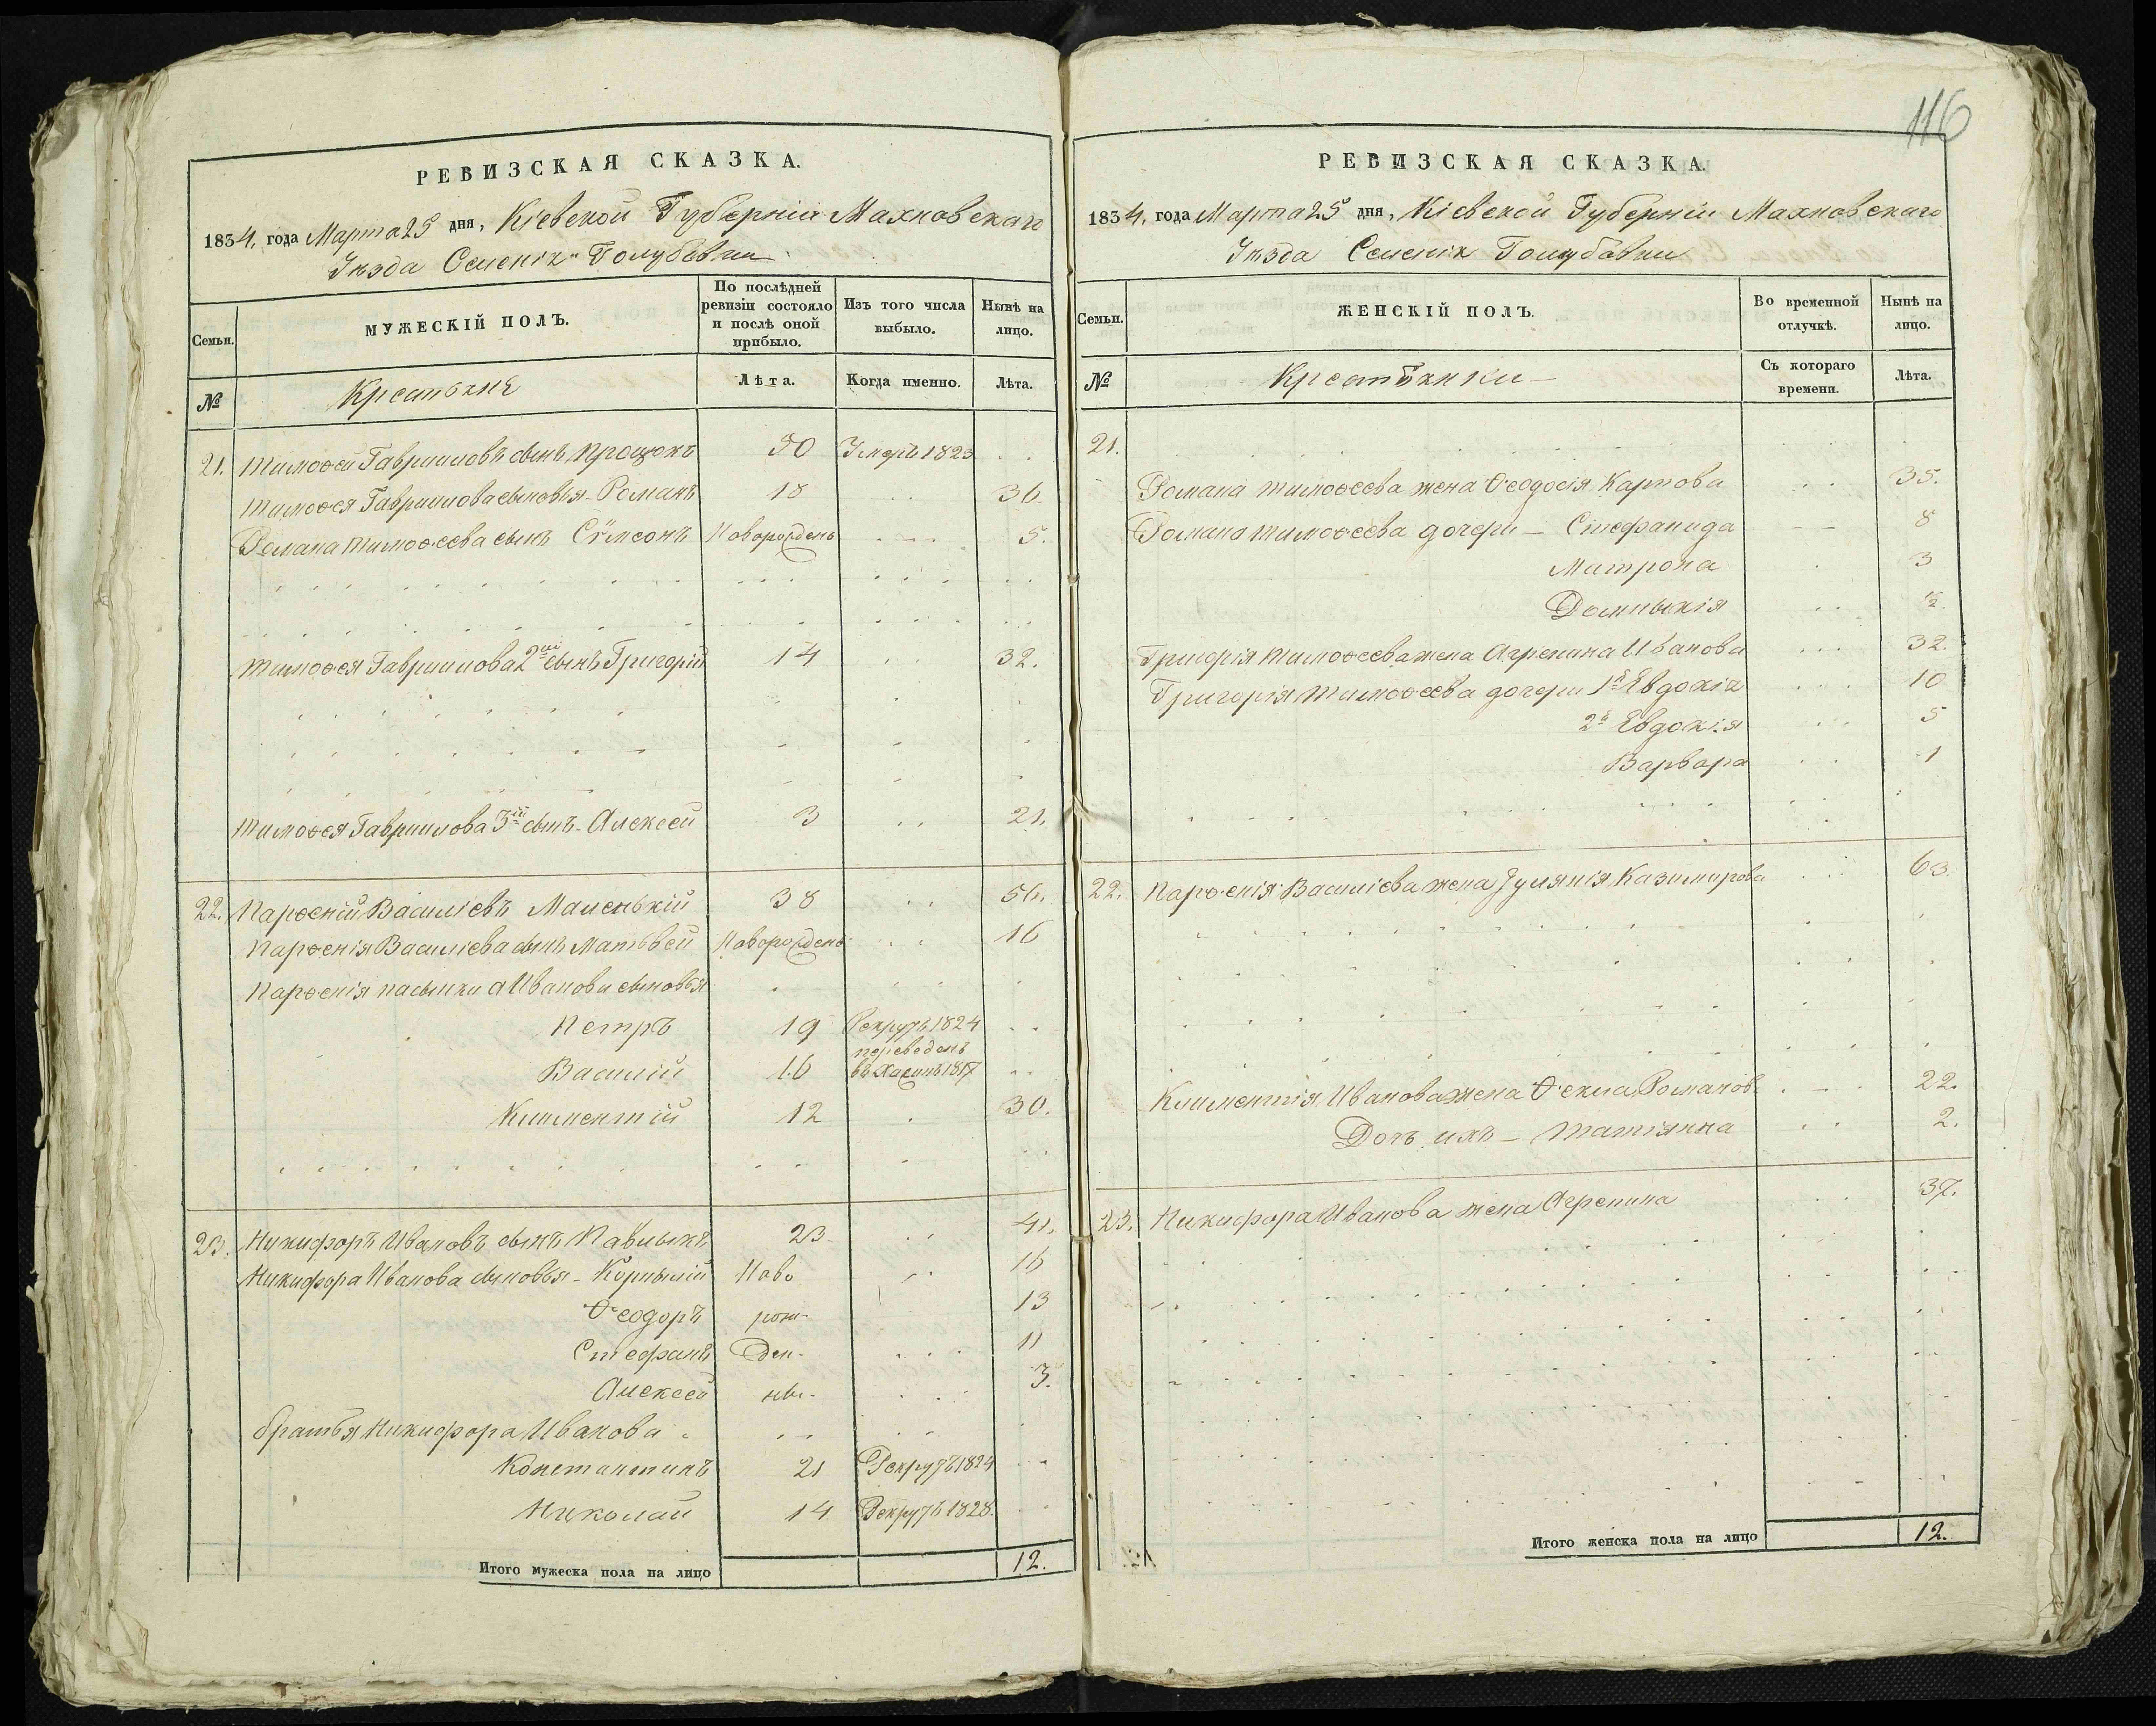 116
РЕВИЗСКАЯ СКАЗКА.
1834, года Марта 25 дня, Кіевской Губерніи Махновскаго
Уѣзда Селенія Голубовки
Семьи. МУЖЕСКІЙ ПОЛЪ. По послѣдней ревизіи состояло и послѣ оной прибыло. Изъ того числа выбыло. Нынѣ на лицо.
№ Крестьяне Лѣта. Когда именно. Лѣта.
21. Тимоѳей Гавриловъ сынъ Процюкъ 50 Умеръ 1823
Тимоѳея Гаврилова сыновья - Романъ 18 36
Романа Тимоѳеева сынъ Сѵмеонъ Новорожденъ 5.
Тимоѳея Гаврилова 2ой сынъ Григорій 14 32.
Тимоѳея Гаврилова 3ій сынъ - Алексей 3 21.
22. Парѳеній Василіевъ Маленькій 38 56.
Парѳенія Василіева сынъ Матьвей Новорожденъ 16
Парѳенія пасынки а Иванови сыновья
Петръ 19 Рекрутъ 1824
Василій 16 переведенъ въ 1817
Климентій 12 30.
23. Никифоръ Ивановъ сынъ Павлыкъ 23 41.
Никифора Иванова сыновья - Корнылій Ново 16
Ѳеодоръ рож- 13
Стефанъ ден- 11
Алексей ны- 3.
братья Никифора Иванова
Константинъ 21 Рекрутъ 1824
Николай 14 Рекрутъ 1828.
Итого мужеска пола на лицо 12.
РЕВИЗСКАЯ СКАЗКА.
1834, года Марта 25 дня, Кіевской Губерніи Махновскаго
Уѣзда Селенія Голубовки
Семьи. ЖЕНСКІЙ ПОЛЪ. Во временной отлучкѣ. Нынѣ на лицо.
№ Крестьянки - Съ котораго времени. Лѣта.
21.
Романа Тимоѳеева жена Ѳеодосія Карпова 35.
Романа Тимоѳеева дочери - Стефанида 8
Матрона 3
Домныкія ½
Григорія Тимоѳеева жена Агрепина Иванова 32.
Григорія Тимоѳеева дочери 1я Евдокія 10
2я Евдокія 5
Варвара 1
22. Парѳенія Василіева жена Іулянія Казимирова 63.
Климентія Иванова жена Ѳекла Романов 22.
Дочь ихъ - Татіянна 2.
23. Никифора Иванова жена Агрепина 37.
Итого женска пола на лицо 12.